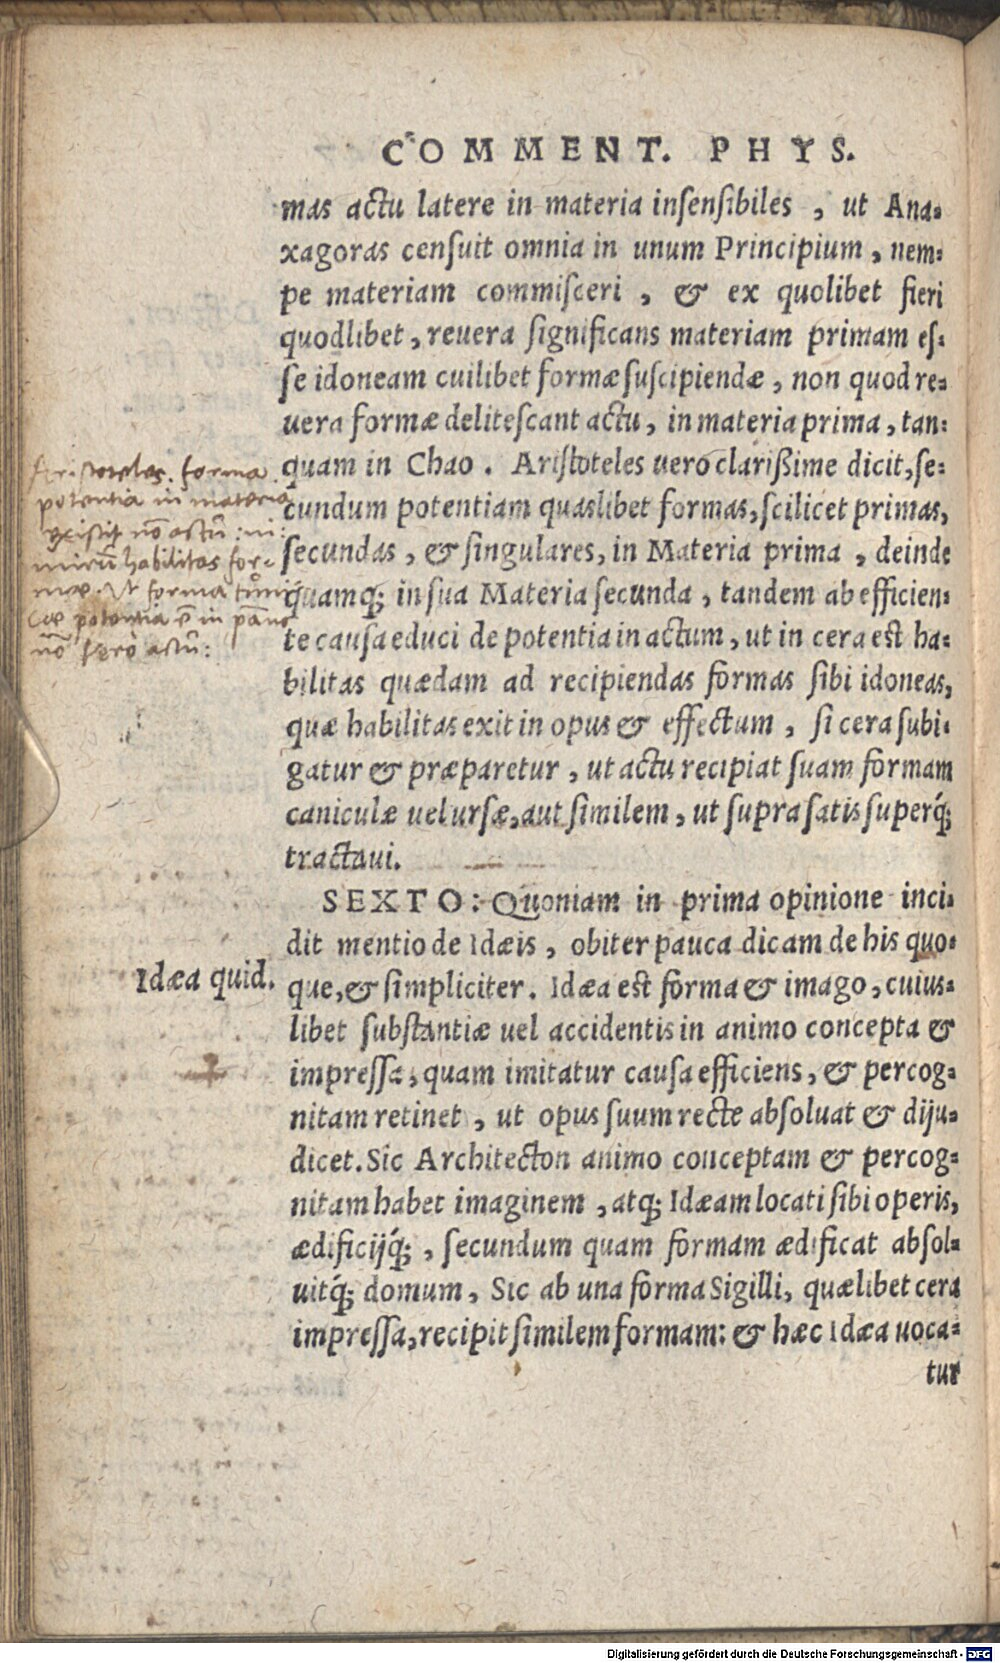 COMMENT. PHYS.
mas actu latere in materia insensibiles, ut Ana-
xagoras censuit omnia in unum Principium, nem-
pe materiam commisceri, & ex quolibet fieri
quodlibet, reuera significans materiam primam es-
se idoneam cuilibet formæ suscipiendæ, non quod re-
uera formæ delitescant actu, in materia prima, tan-
quam in Chao. Aristoteles uero clarißime dicit, se-
cundum potentiam quaslibet formas, scilicet primas,
secundas, & singulares, in Materia prima, deinde
quamq́; in sua Materia secunda, tandem ab efficien-
te causa educi de potentia in actum, ut in cera est ha-
bilitas quædam ad recipiendas formas sibi idoneas,
quæ habilitas exit in opus & effectum, si cera subi-
gatur & præparetur, ut actu recipiat suam formam
caniculæ uel ursæ, aut similem, ut supra satis superq́;
tractaui.
Aristoteles. forma
potentia in materia
existit nō actū: ni-
mirū habilitas for-
mæ. Ut forma tuni
cæ potentia ē in pāno
nō vero actū:
SEXTO: Quoniam in prima opinione inci-
dit mentio de Idæis, obiter pauca dicam de his quo-
Idæa quid.
que, & simpliciter. Idæa est forma & imago, cuius-
libet substantiæ uel accidentis in animo concepta &
impressa, quam imitatur causa efficiens, & percog-
nitam retinet, ut opus suum recte absoluat & diju-
dicet. Sic Architecton animo conceptam & percog-
nitam habet imaginem, atq; Idæam locati sibi operis,
ædificijq́;, secundum quam formam ædificat absol-
uitq́; domum, Sic ab una forma Sigilli, quælibet cera
impressa, recipit similem formam: & hæc Idæa uoca-
tur
Digitalisierung gefördert durch die Deutsche Forschungsgemeinschaft - DFG